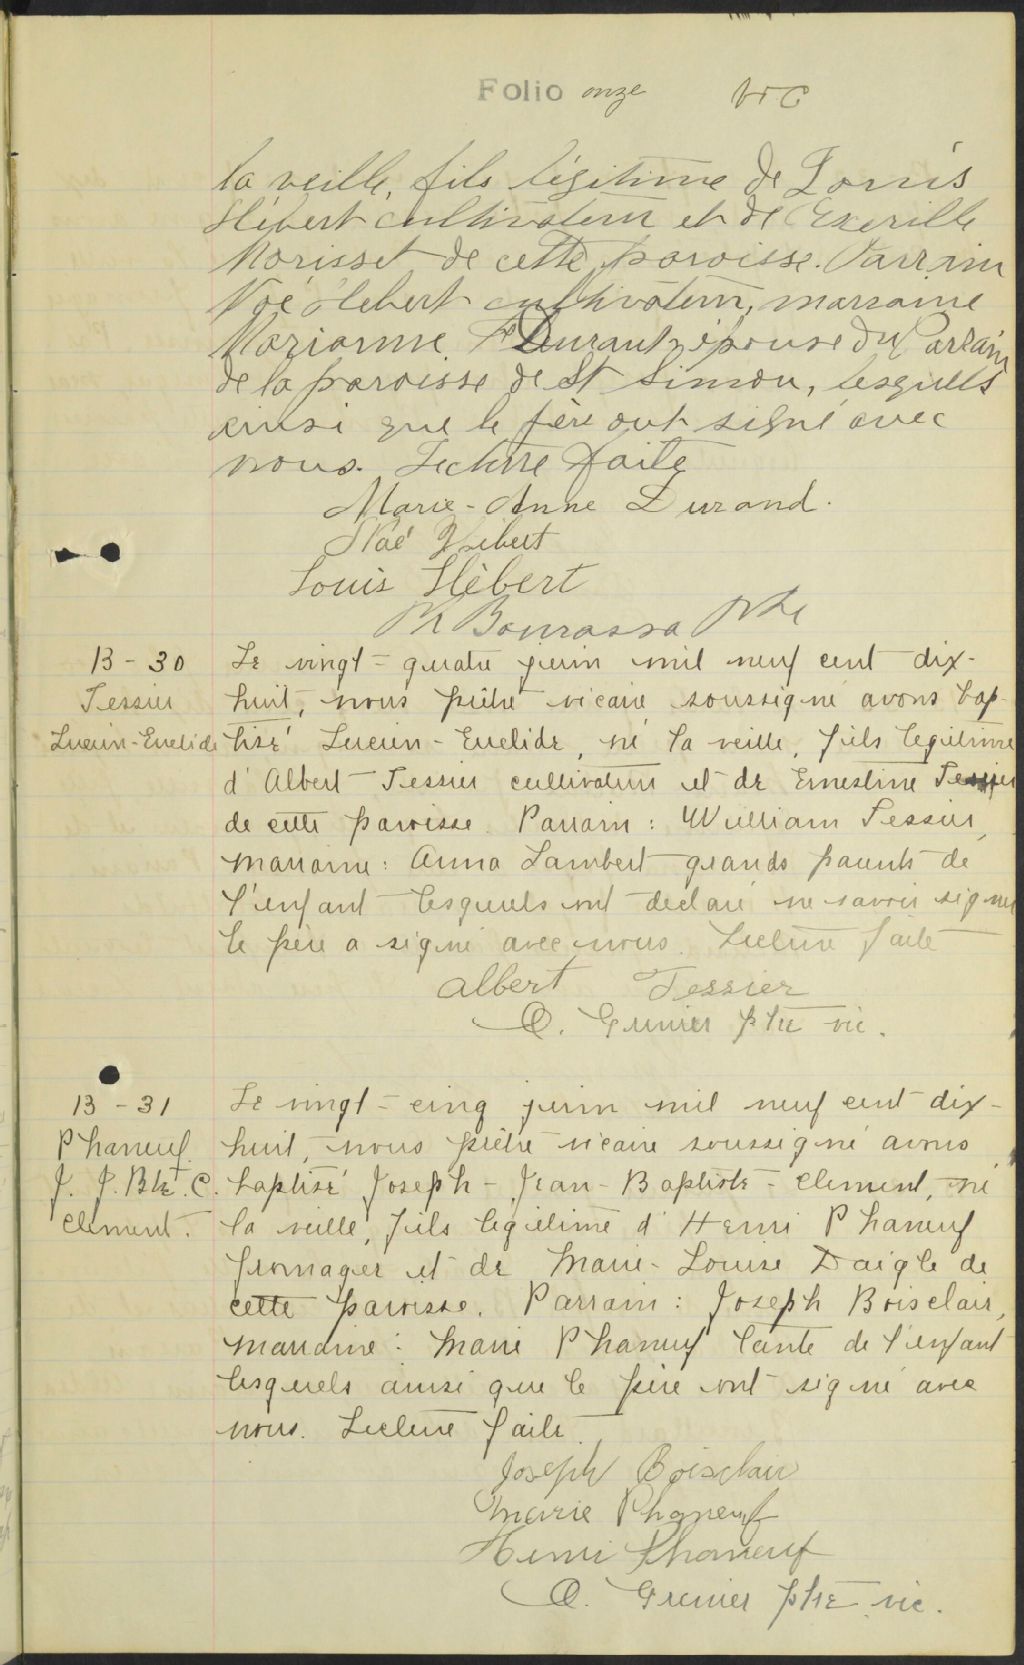 Folio onze
la veille, fils légitime de Louis
Hébert cultivateur et de Exerille
Morisset de cette paroisse. Parrain
Noé Hébert cultivateur, marraine
Marianne Durant épouse du Parrain
de la paroisse de St Simon, lesquels
ainsi que le père ont signé avec
nous. Lecture faite
Marie-Anne Durand.
Noé Hébert
Louis Hébert
Ph Bourassa Ptre
B - 30
Tessier
Lucien-Euclide
Le vingt-quatre juin mil neuf cent dix-
huit, nous prêtre vicaire soussigné avons bap-
tisé Lucien-Euclide, né la veille, fils légitime
d'Albert Tessier cultivateur et de Ernestine Tessier
de cette paroisse. Parrain: William Tessier,
marraine: Anna Lambert grands parents de
l'enfant lesquels ont déclaré ne savoir signer
le père a signé avec nous. Lecture faite
Albert Tessier
O. Grenier ptre vic.
B - 31
Phaneuf
J. J. Bte. C.
Clement.
Le vingt-cinq juin mil neuf cent dix-
huit, nous prêtre vicaire soussigné avons
baptisé Joseph-Jean-Baptiste-Clement, né
la veille, fils légitime d'Henri Phaneuf
fromager et de Marie-Louise Daigle de
cette paroisse. Parrain: Joseph Boisclair,
marraine: Marie Phaneuf tante de l'enfant
lesquels ainsi que le père ont signé avec
nous. Lecture faite
Joseph Boisclair
Marie Phaneuf
Henri Phaneuf
O. Grenier ptre vic.